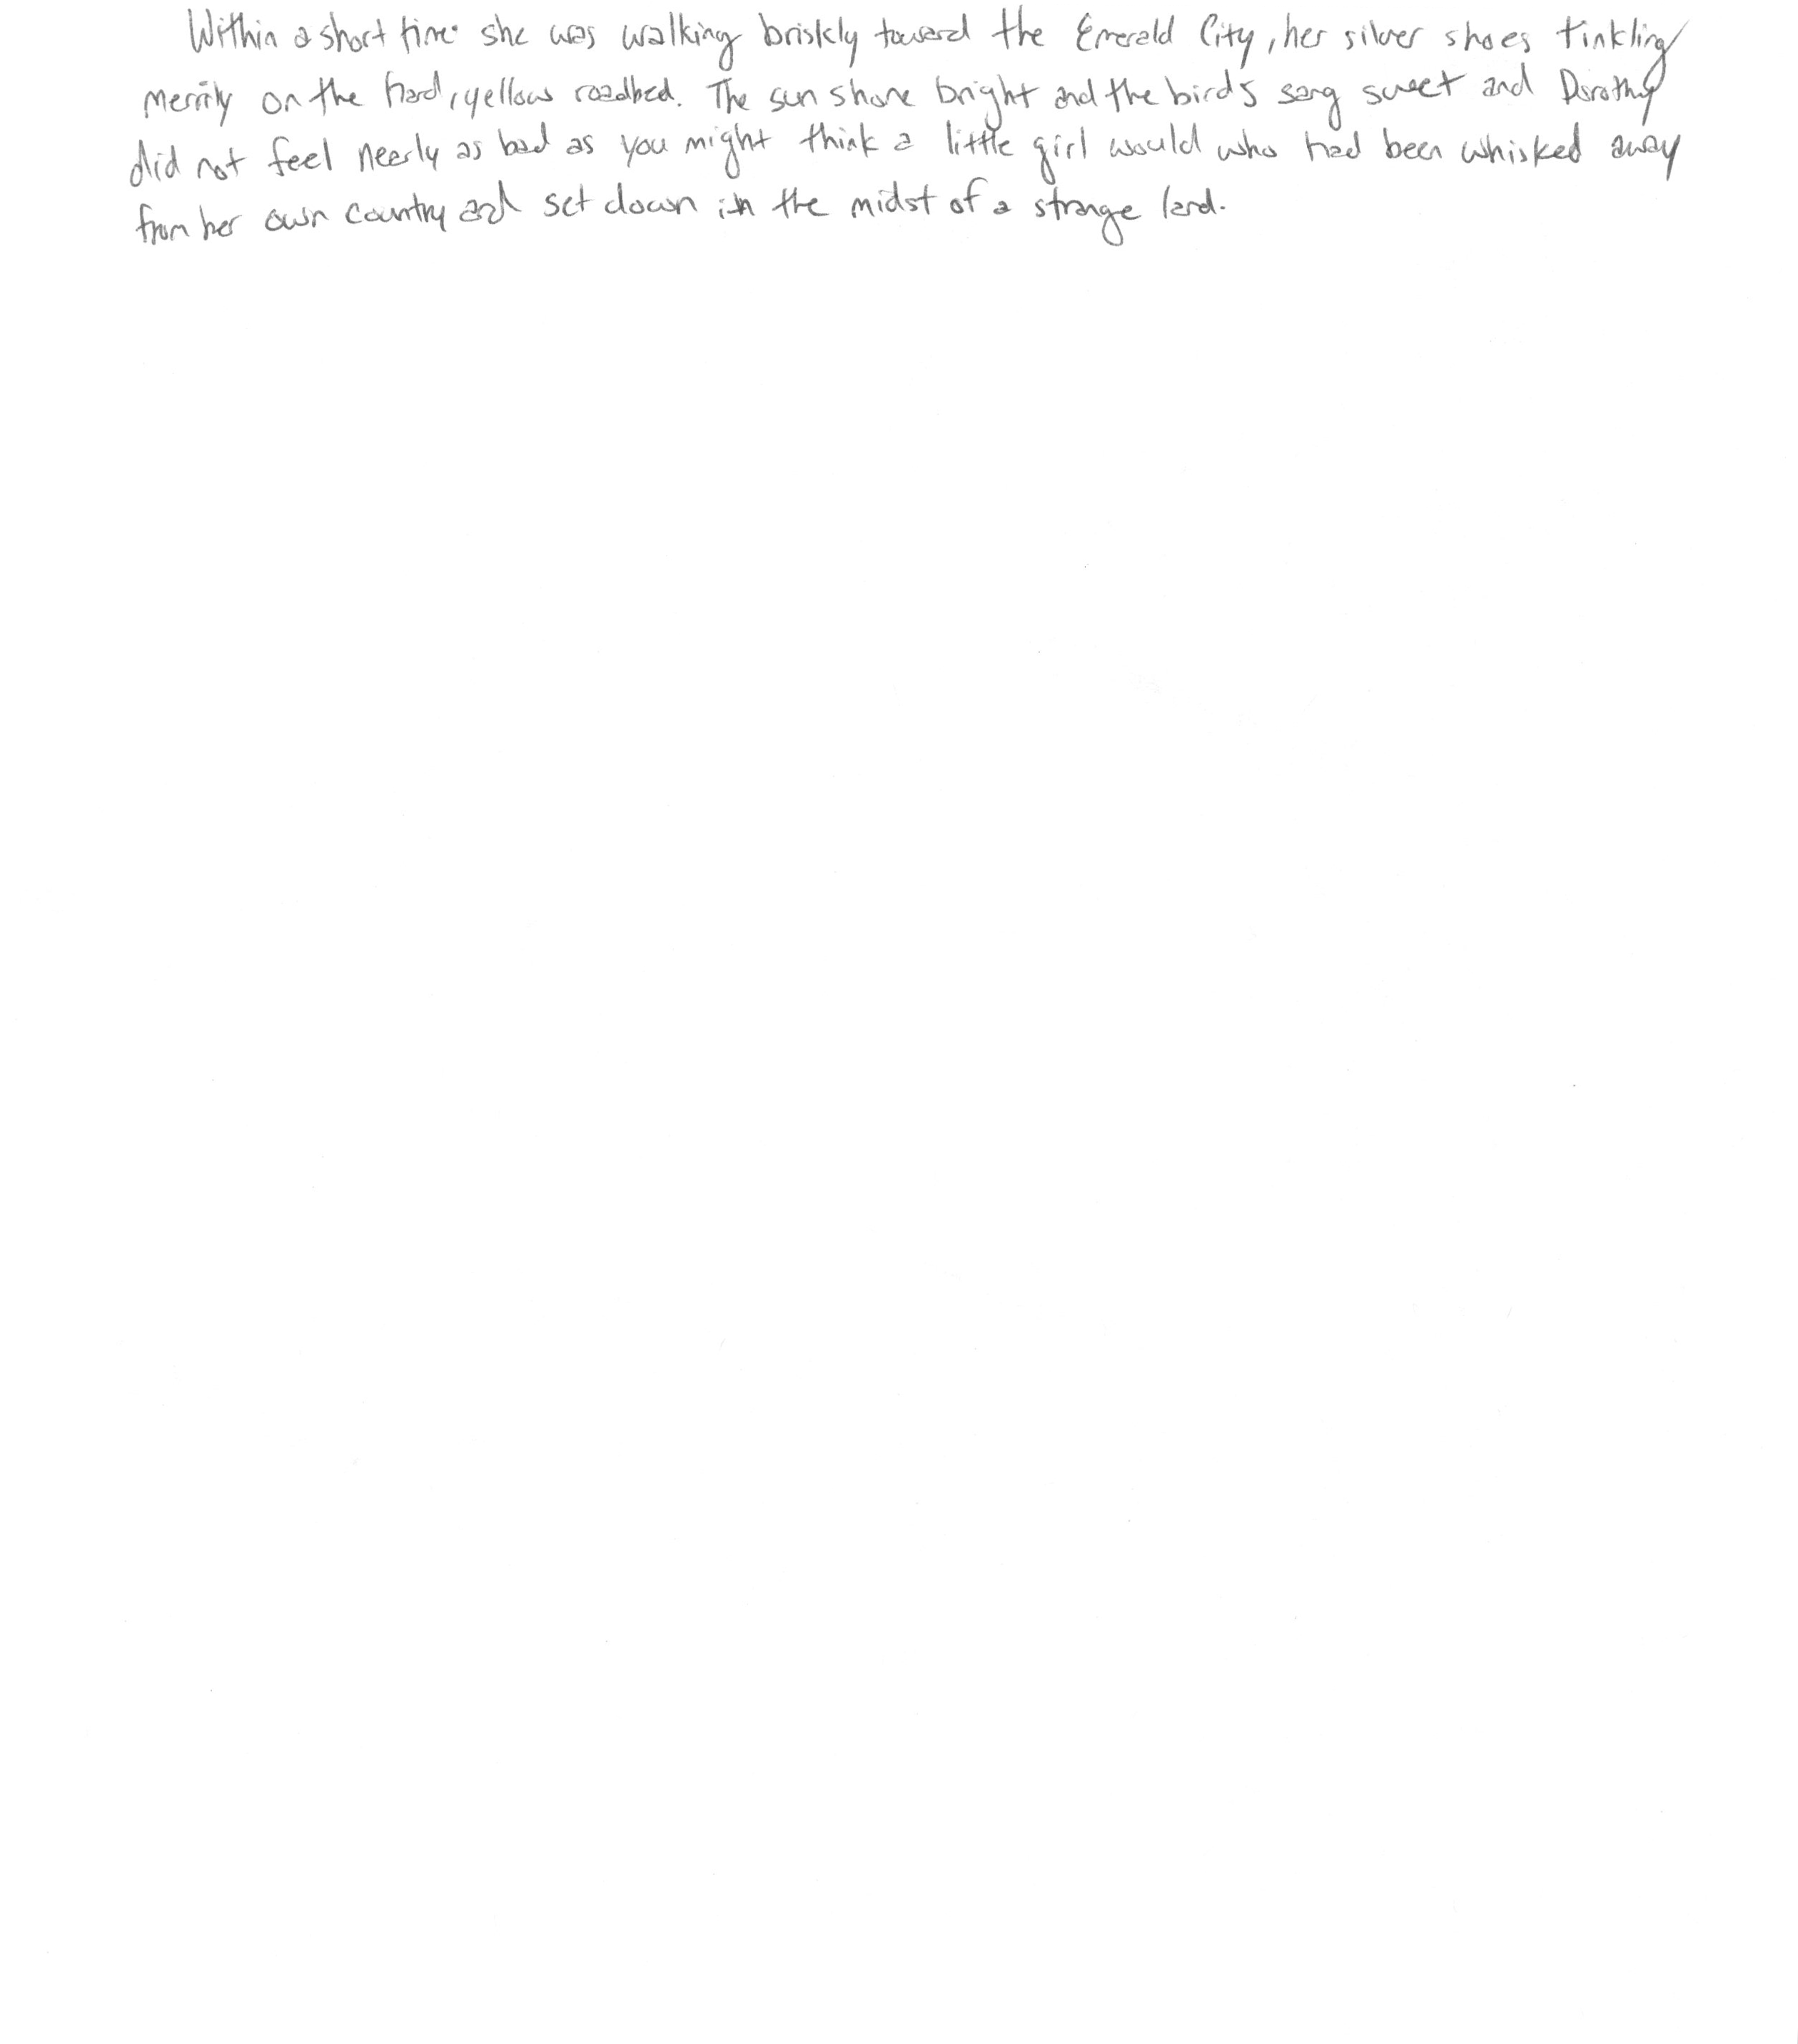 Within a short time she was walking briskly toward the Emerald City, her silver shoes tinkling
merrily on the hard, yellow roadbed. The sun shone bright and the birds sang sweet and Dorothy
did not feel nearly as bad as you might think a little girl would who had been whisked away
from her own country and set down in the midst of a strange land.